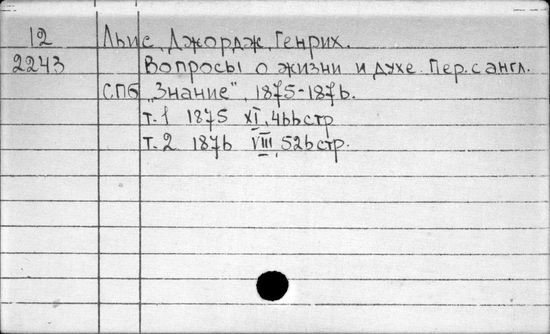 12 Льис, Джордж Генрих.
2243 Вопросы о жизни и духе. Пер. с англ.
С.Пб „Знание", 1875-1876.
т. 1 1875 XI, 466 стр
т. 2 1876 VIII, 526 стр.